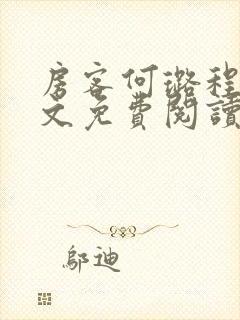 房客何璐程
文免费閱讀
鄔迪